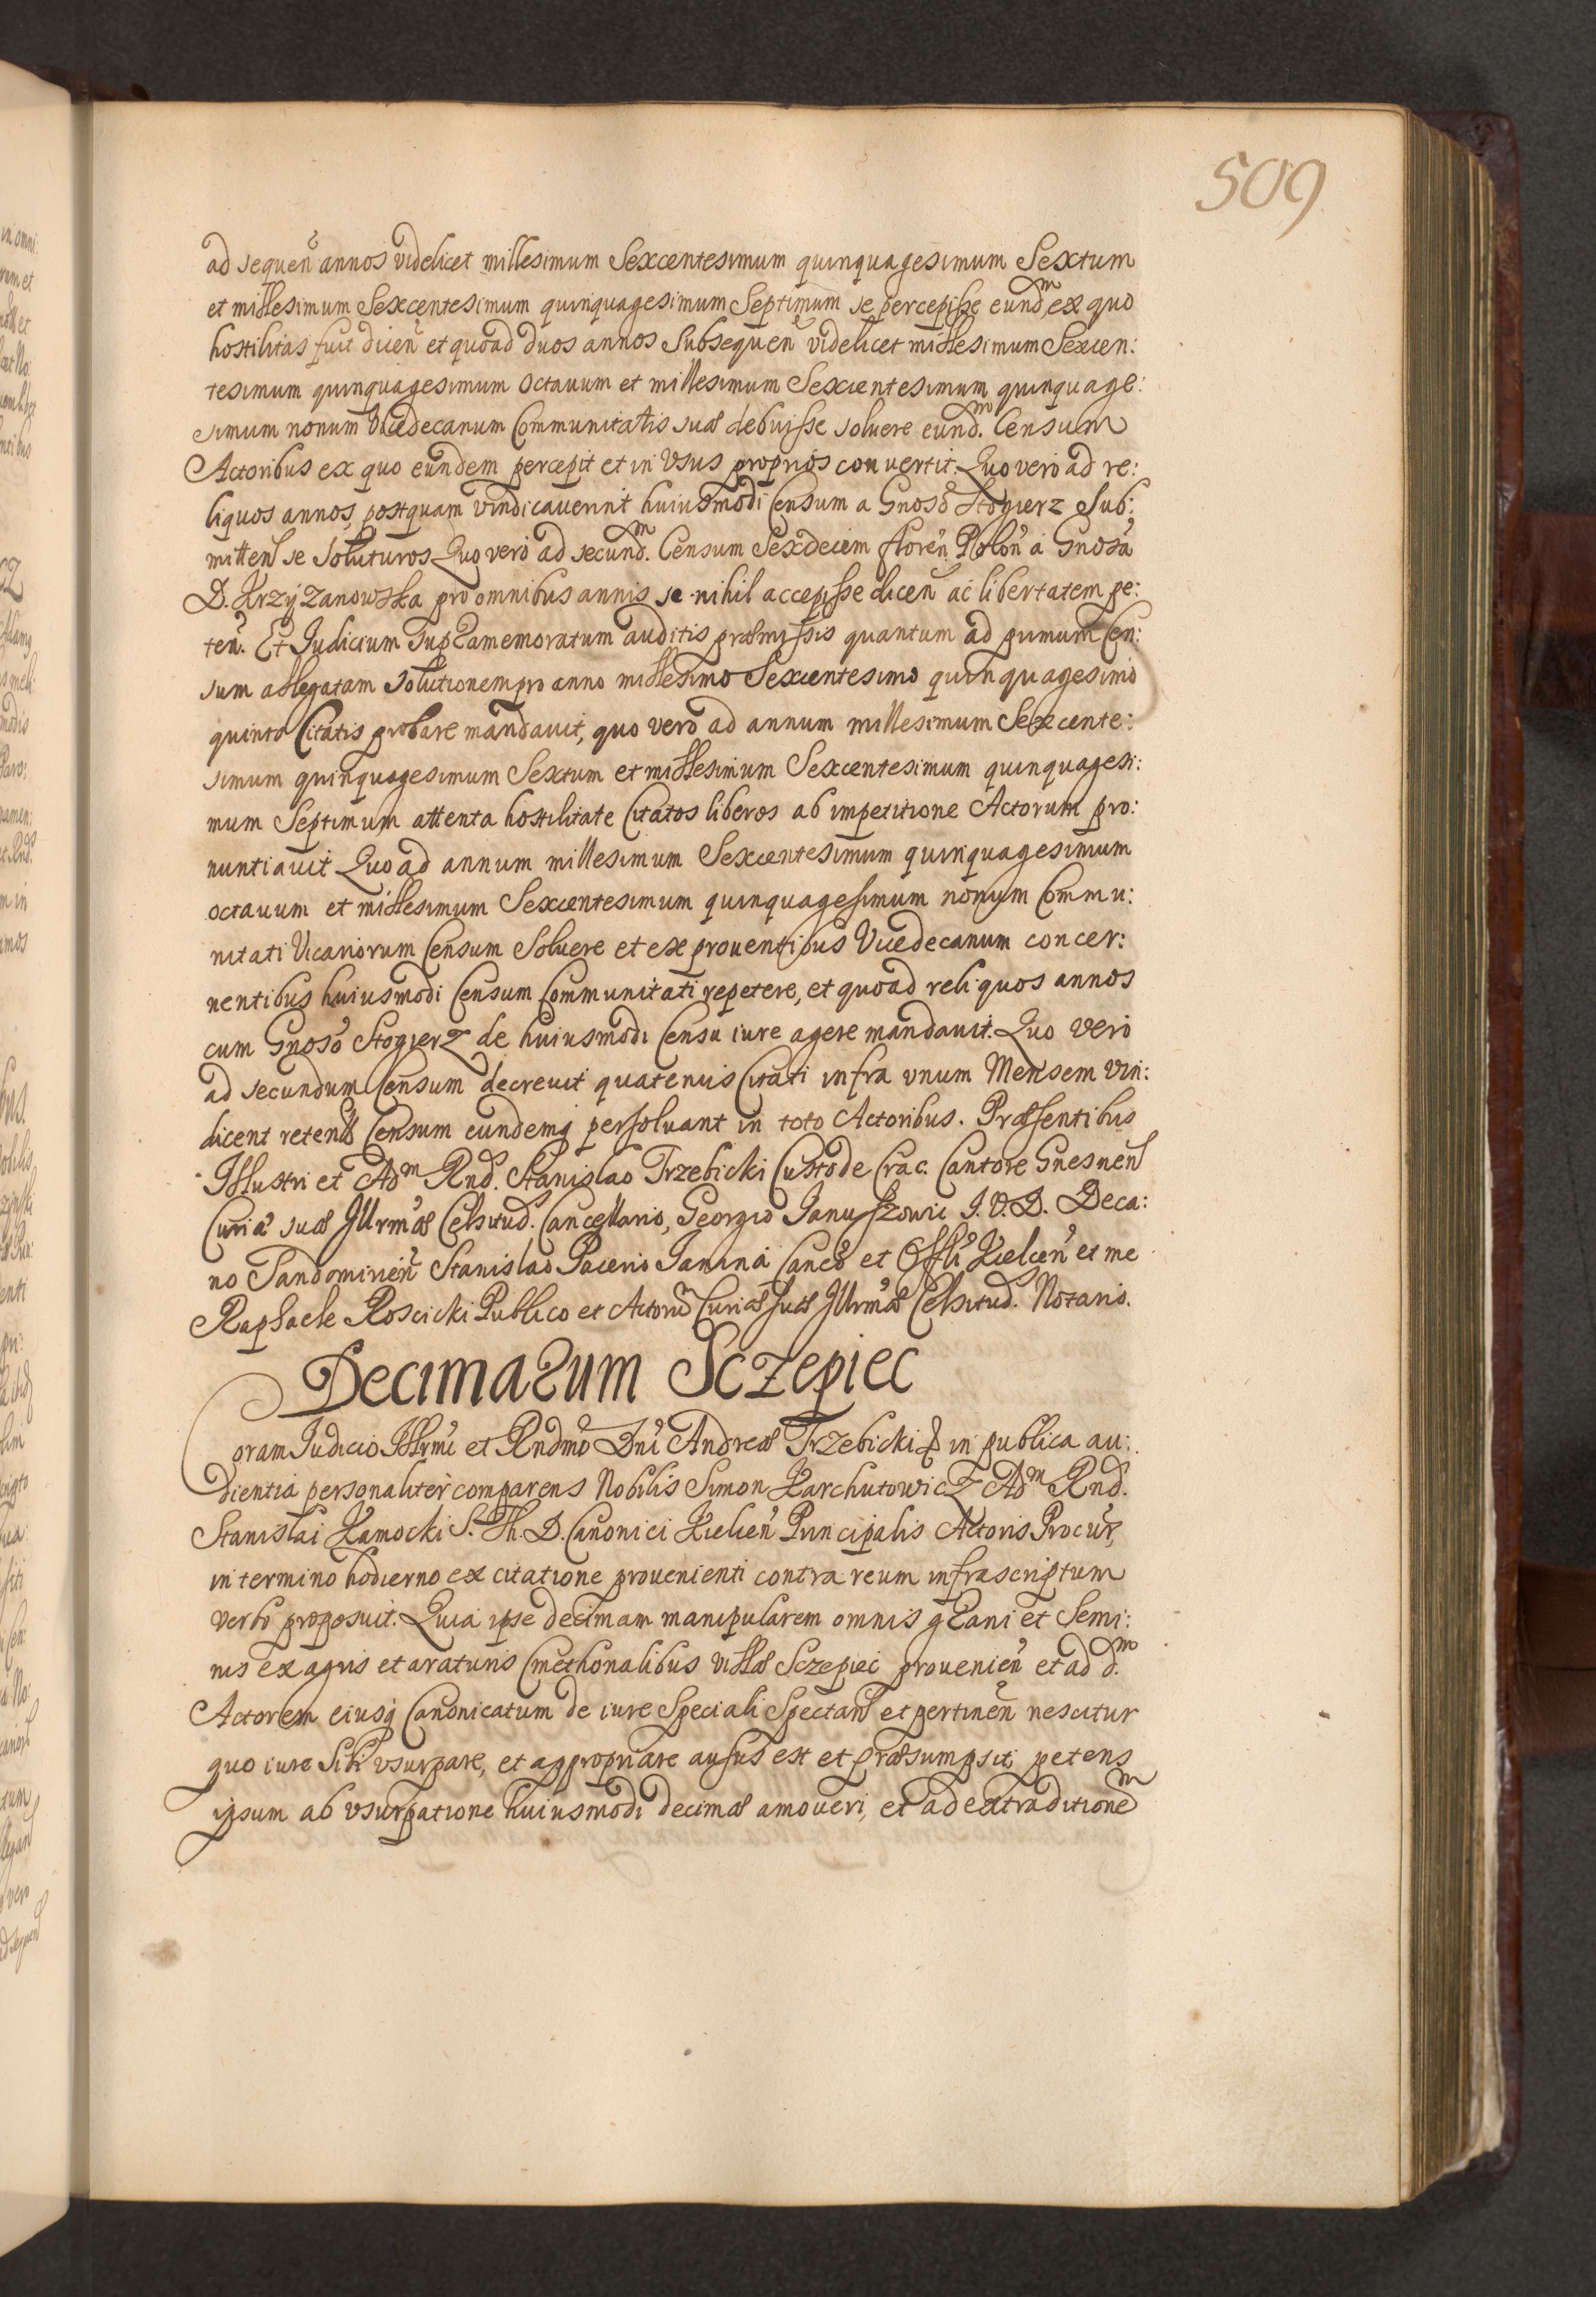 509
ad sequeñ annos videlicet millesimum Sexcentesimum quinquagesimum Sextum
et millesimum Sexcentesimum quinquagesimum Septimum se percepisse eundm ex quo
hostilitas fuit diceñ et quoad duos annos Subsequeñ videlicet millesimum Sexcen:
tesimum quinquagesimum octauum et millesimum Sexcentesimum quinquage:
simum nonum Vicedecanum Communitatis suæ debuisse soluere eundm. Censum
Actoribus ex quo eundem percepit et in Vsus proprios conuertit. Quo vero ad re:
liquos annos, postquam vindicauerint huiusmodi Censum a Gnoso Stogierz Sub:
mitten se Soluturos Quo vero ad secundm. Censum Sexdecim floreñ Poloñ a Gnosa
D. Krzyżanowska pro omnibus annis se nihil accepisse diceñ ac libertatem pe:
teñ. Et Judicium supramemoratum auditis præmissis quantum ad primum Cen:
sum allegatam Solutionem pro anno millesimo Sexcentesimo quinquagesimo
quinto Citatis probare mandauit, quo vero ad annum millesimum Sexcente:
simum quinquagesimum Sextum et millesimum Sexcentesimum quinquagesi:
mum Septimum attenta hostilitate Citatos liberos ab impetitione Actorum pro:
nuntiauit Quo ad annum millesimum Sexcentesimum quinquagesimum
octauum et millesimum Sexcentesimum quinquagesimum nonum Commu:
nitati Vicariorum Censum Soluere et ex prouentibus Vicedecanum concer:
nentibus huiusmodi Censum Communitati repetere, et quoad reliquos annos
cum Gnoso Stogierz de huiusmodi Censu iure agere mandauit. Quo vero
ad secundum Censum decreuit quatenus Citati infra vnum Mensem vin:
dicent retent Censum eundemq persoluant in toto Actoribus. Præsentibus
Illustri et Adm Rnd. Stanislao Trzebicki Custode Crac. Cantore Gnesnen
Curiæ suæ Illrmæ Celsitud. Cancellario, Georgio Januszowic J. V. D. Deca:
no Sandomirieñ Stanislao Pacerio Janina Canco et Offli Kielceñ et me
Raphaele Roscicki Publico et Actorū Curiæ suæ Illrmæ Celsitud. Notario.
Decimarum Sczepiec
Coram Judicio Illrmi et Rndmo Dni Andreæ Trzebicki & in publica au:
dientia personaliter comparens Nobilis Simon Karchutowicz Adm Rnd.
Stanislai Zamocki S. Th. D. Canonici Kielceñ Principalis Actoris Procur,
in termino hodierno ex citatione prouenienti contra reum infrascriptum
verbo proposuit. Quia ipse decimam manipularem omnis grani et Semi:
nis ex agris et araturis Cmethonalibus villæ Sczepiec prouenieñ et ad dm.
Actorem eiusq Canonicatum de iure Speciali Spectan et pertineñ nescitur
quo iure Sibi vsurpare, et appropriare ausus est et præsumpsit, petens
ipsum ab vsurpatione huiusmodi decimæ amoueri, et ad extraditionem